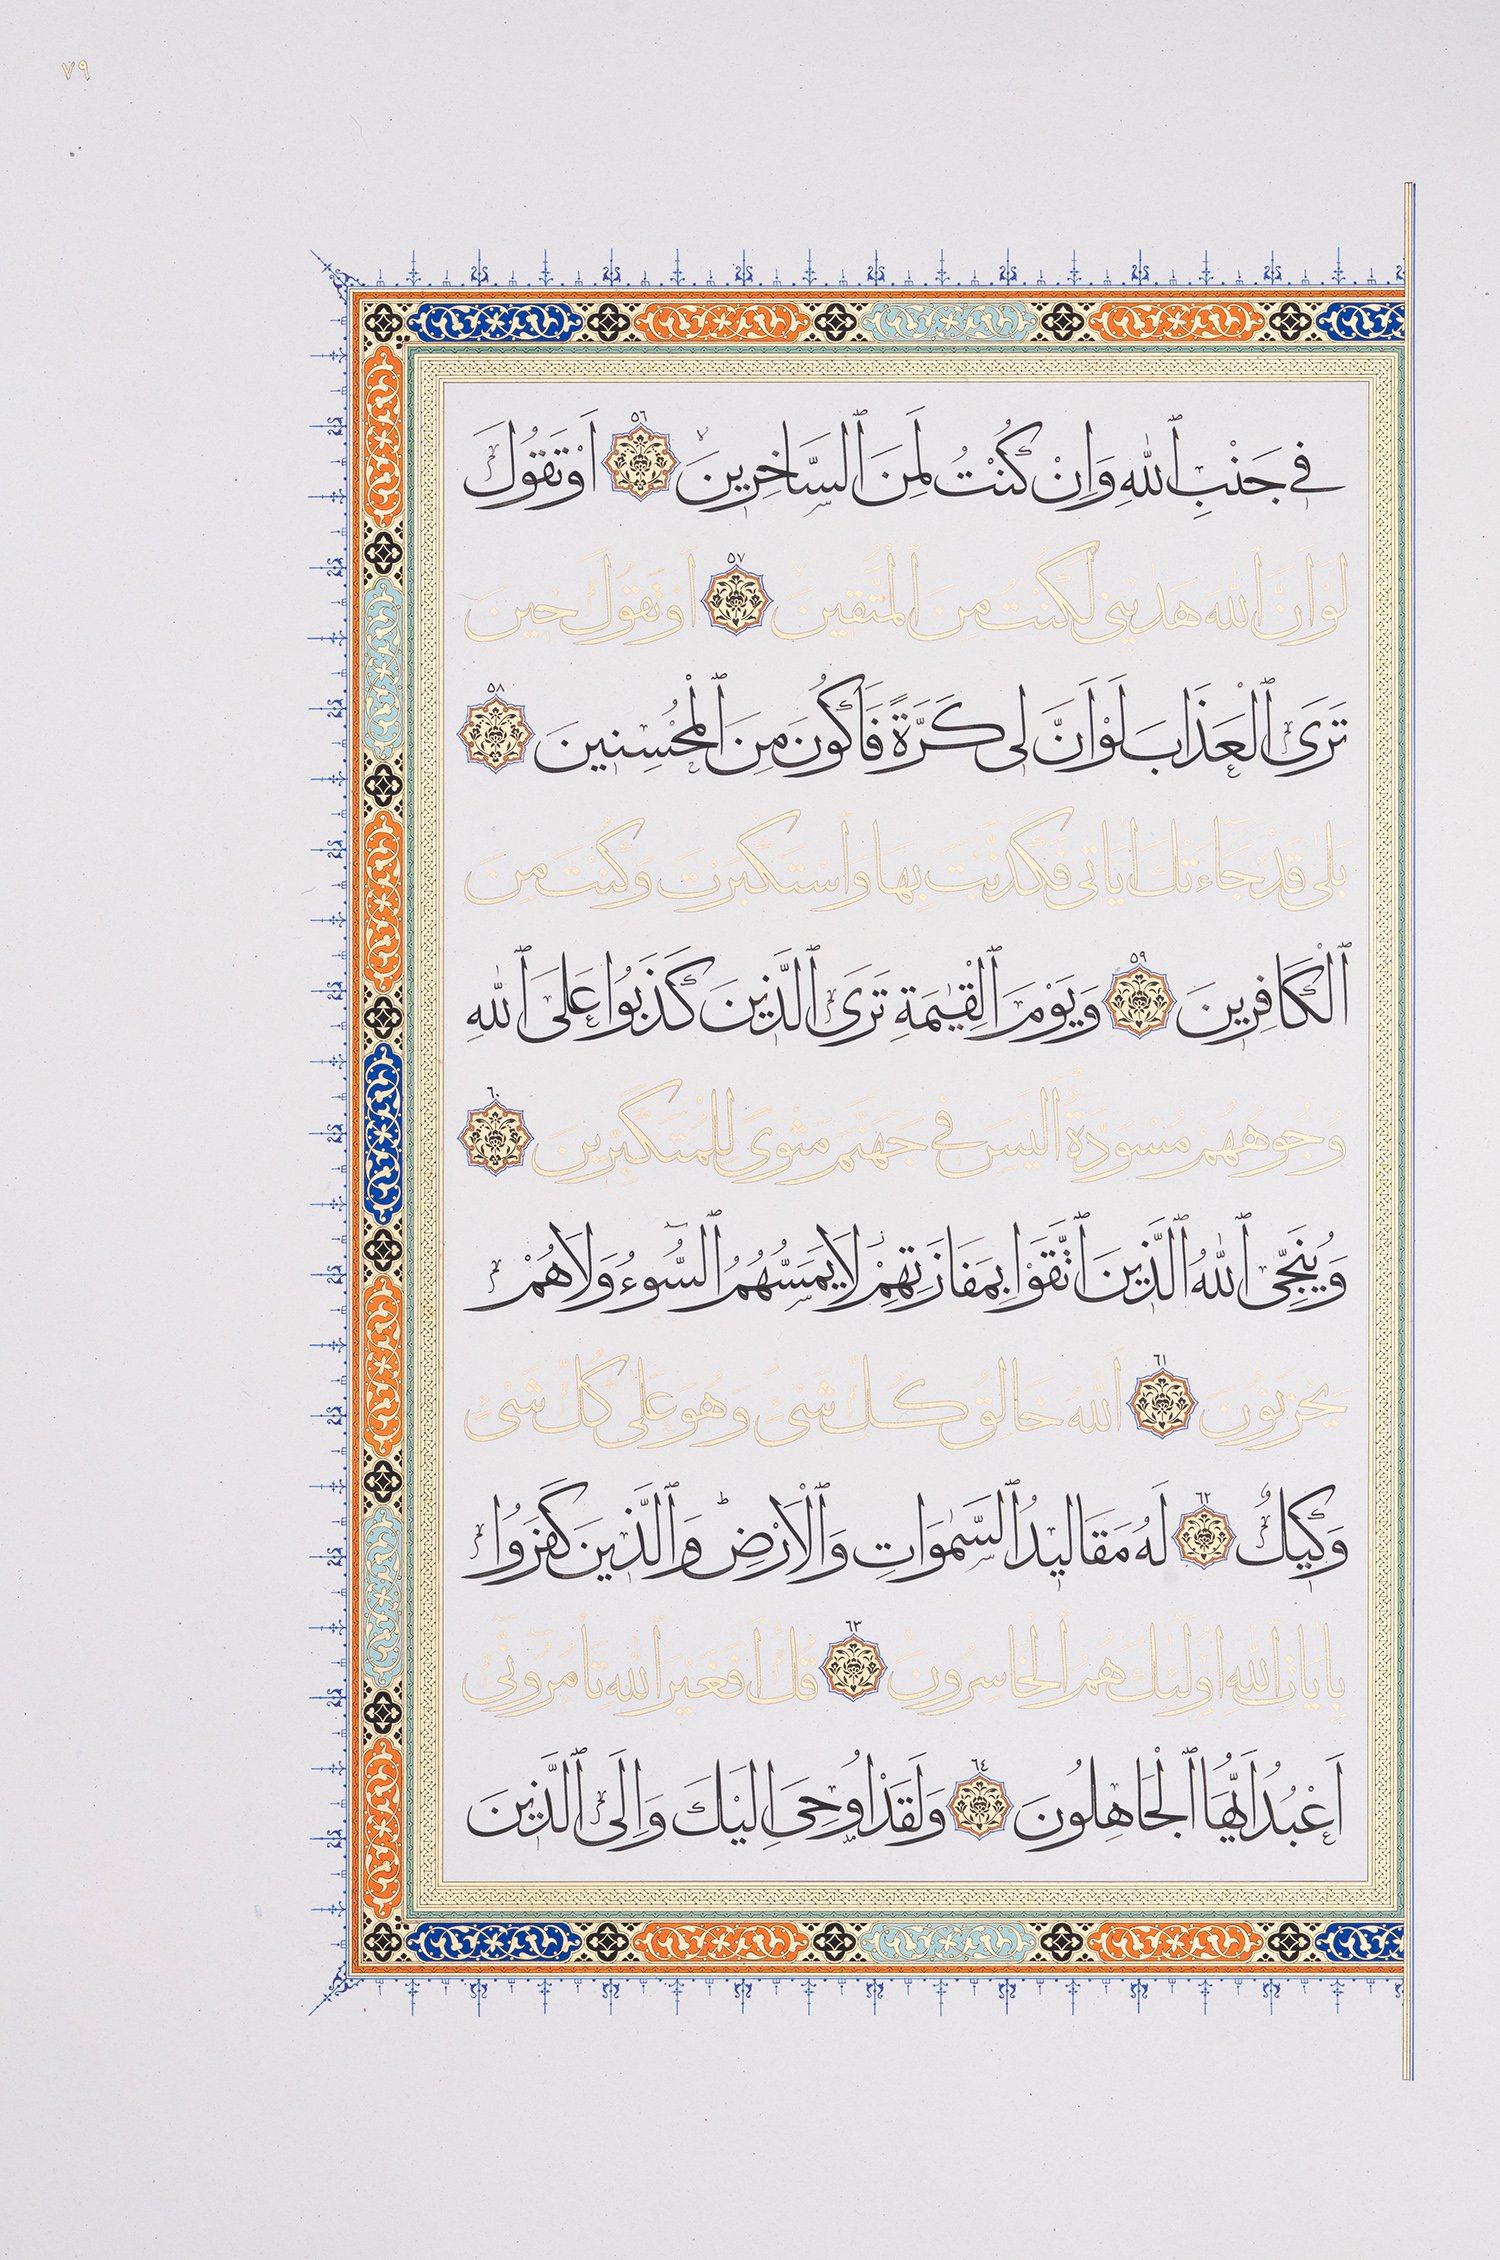 ٧٩
فِي جَنْبِ ٱللّٰهِ وَاِنْ كُنْتُ لَمِنَ ٱلسَّاخِرِينَ ٥٦ اَوْ تَقُولَ
لَوْ اَنَّ ٱللّٰهَ هَدٰينِي لَكُنْتُ مِنَ ٱلْمُتَّقِينَ ٥٧ اَوْ تَقُولَ حِينَ
تَرَى ٱلْعَذَابَ لَوْ اَنَّ لِى كَرَّةً فَاَكُونَ مِنَ ٱلْمُحْسِنِينَ ٥٨
بَلٰى قَدْ جَاءَتْكَ اٰيَاتِى فَكَذَّبْتَ بِهَا وَٱسْتَكْبَرْتَ وَكُنْتَ مِنَ
ٱلْكَافِرِينَ ٥٩ وَيَوْمَ ٱلْقِيٰمَةِ تَرَى ٱلَّذِينَ كَذَبُوا عَلَى ٱللّٰهِ
وُجُوهُهُمْ مُسْوَدَّةٌ اَلَيْسَ فِى جَهَنَّمَ مَثْوًى لِلْمُتَكَبِّرِينَ ٦٠
وَيُنَجِّى ٱللّٰهُ ٱلَّذِينَ ٱتَّقَوْا بِمَفَازَتِهِمْ لَا يَمَسُّهُمُ ٱلسُّوءُ وَلَا هُمْ
يَحْزَنُونَ ٦١ اَللّٰهُ خَالِقُ كُلِّ شَىْءٍ وَهُوَ عَلٰى كُلِّ شَىْءٍ
وَكِيلٌ ٦٢ لَهُ مَقَالِيدُ ٱلسَّمٰوَاتِ وَٱلْاَرْضِ وَٱلَّذِينَ كَفَرُوا
بِاٰيَاتِ ٱللّٰهِ اُولٰئِكَ هُمُ ٱلْخَاسِرُونَ ٦٣ قُلْ اَفَغَيْرَ ٱللّٰهِ تَاْمُرُونِّى
اَعْبُدُ اَيُّهَا ٱلْجَاهِلُونَ ٦٤ وَلَقَدْ اُوحِىَ اِلَيْكَ وَاِلَى ٱلَّذِينَ